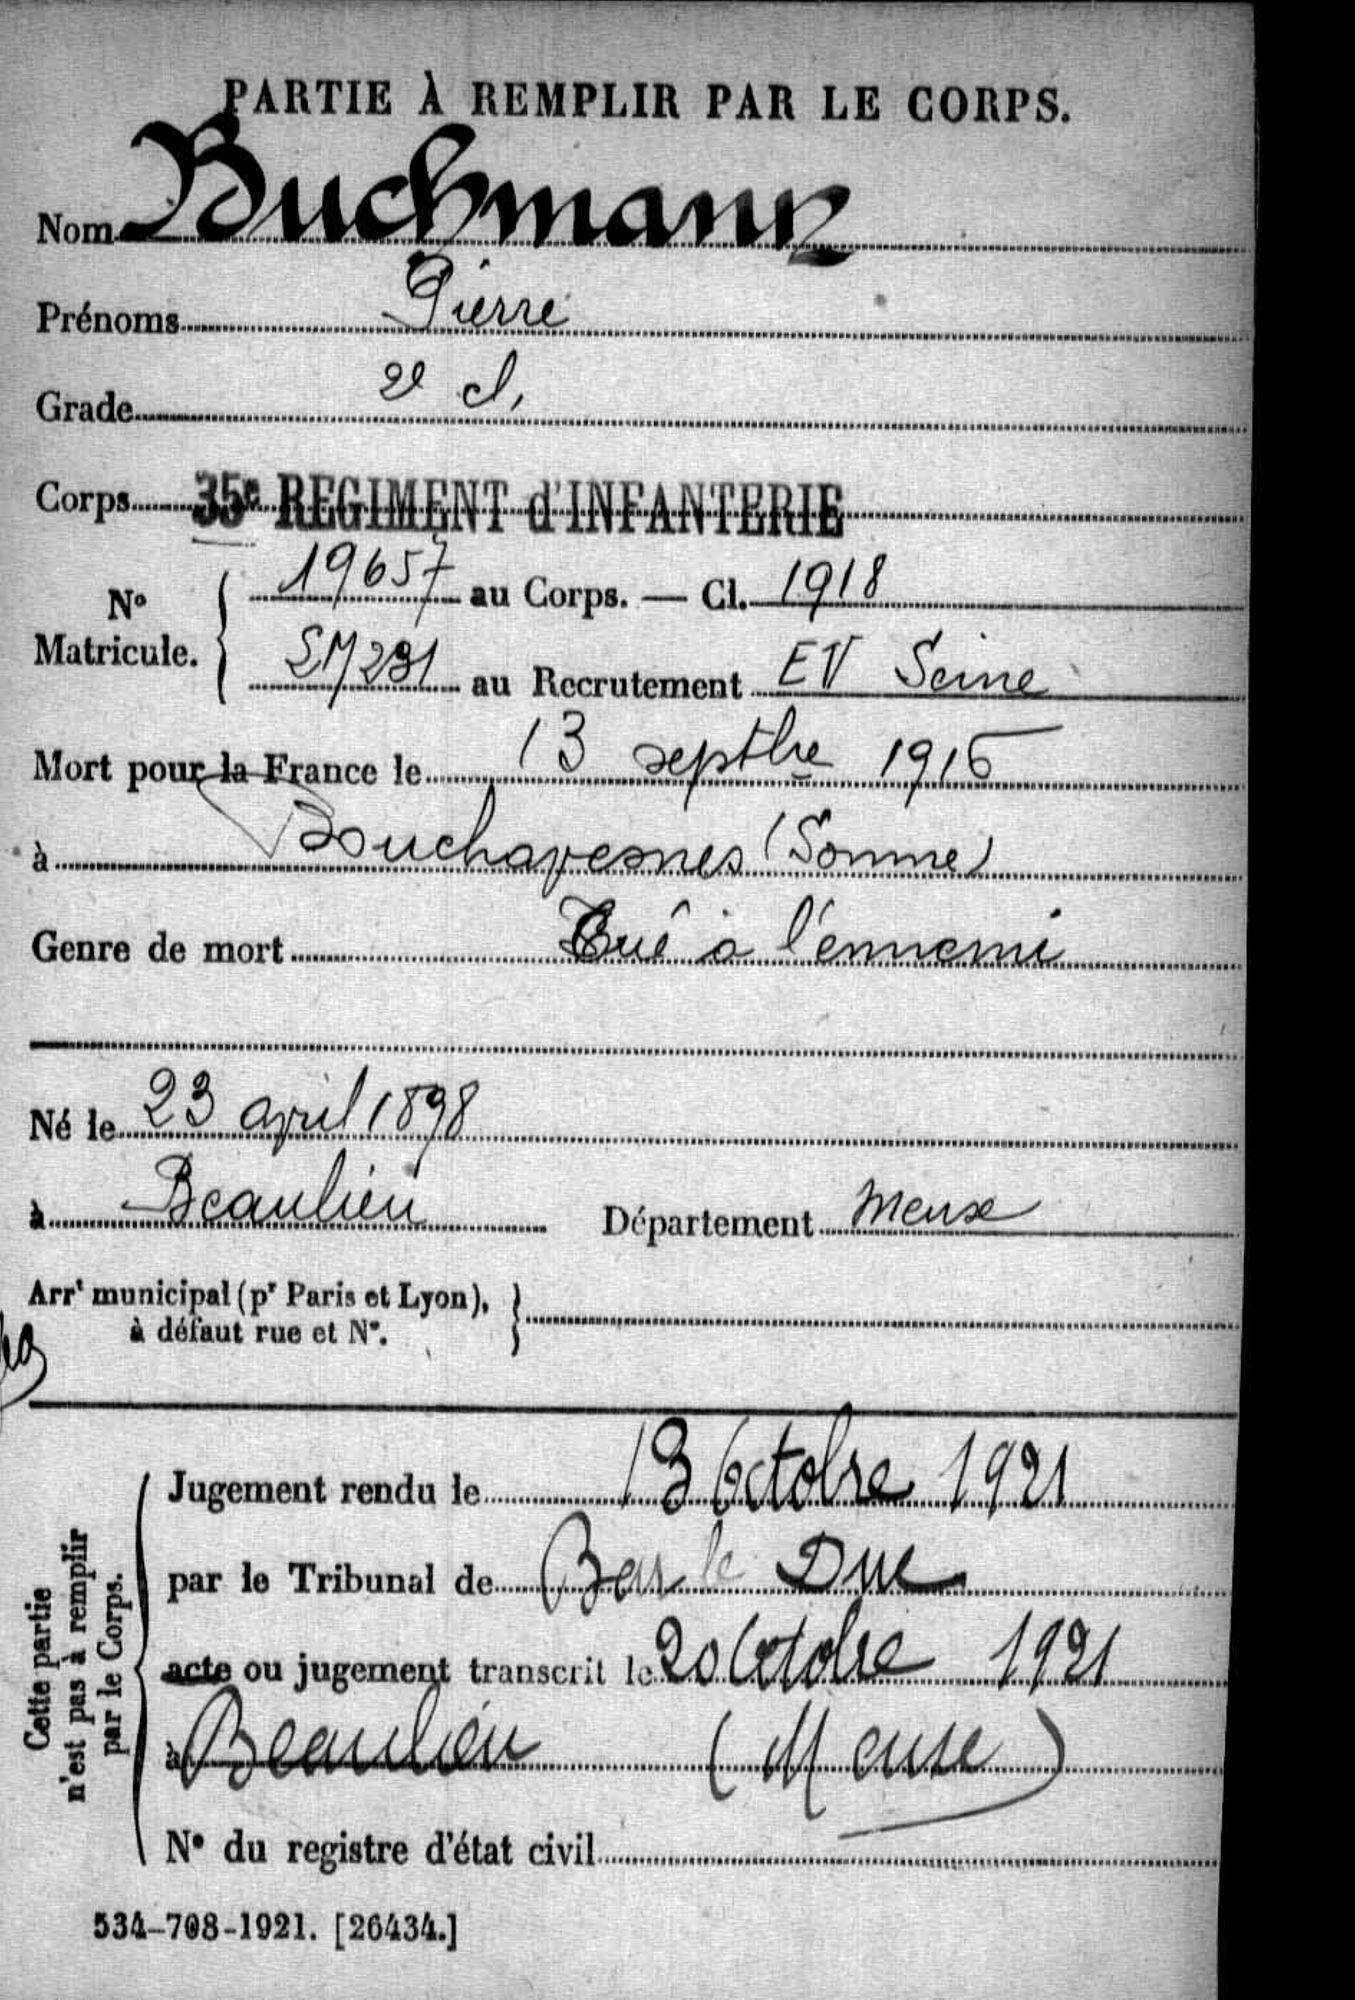 PARTIE À REMPLIR PAR LE CORPS.
Nom Buchmann
Prénoms Pierre
Grade 2e cl.
Corps 35e REGIMENT d'INFANTERIE
No Matricule. { 19657 au Corps. — Cl. 1918
231 au Recrutement EV Seine
Mort pour la France le 13 septbre 1916
à Bouchavesnes (Somme)
Genre de mort Tué à l'ennemi
Né le 23 avril 1898
à Beaulieu Département Meuse
Arrt municipal (pr Paris et Lyon), }
à défaut rue et No.
Cette partie
n'est pas à remplir
par le Corps.
Jugement rendu le 13 Octobre 1921
par le Tribunal de Bar le Duc
acte ou jugement transcrit le 20 Octobre 1921
à Beaulieu (Meuse)
No du registre d'état civil
534-708-1921. [26434.]